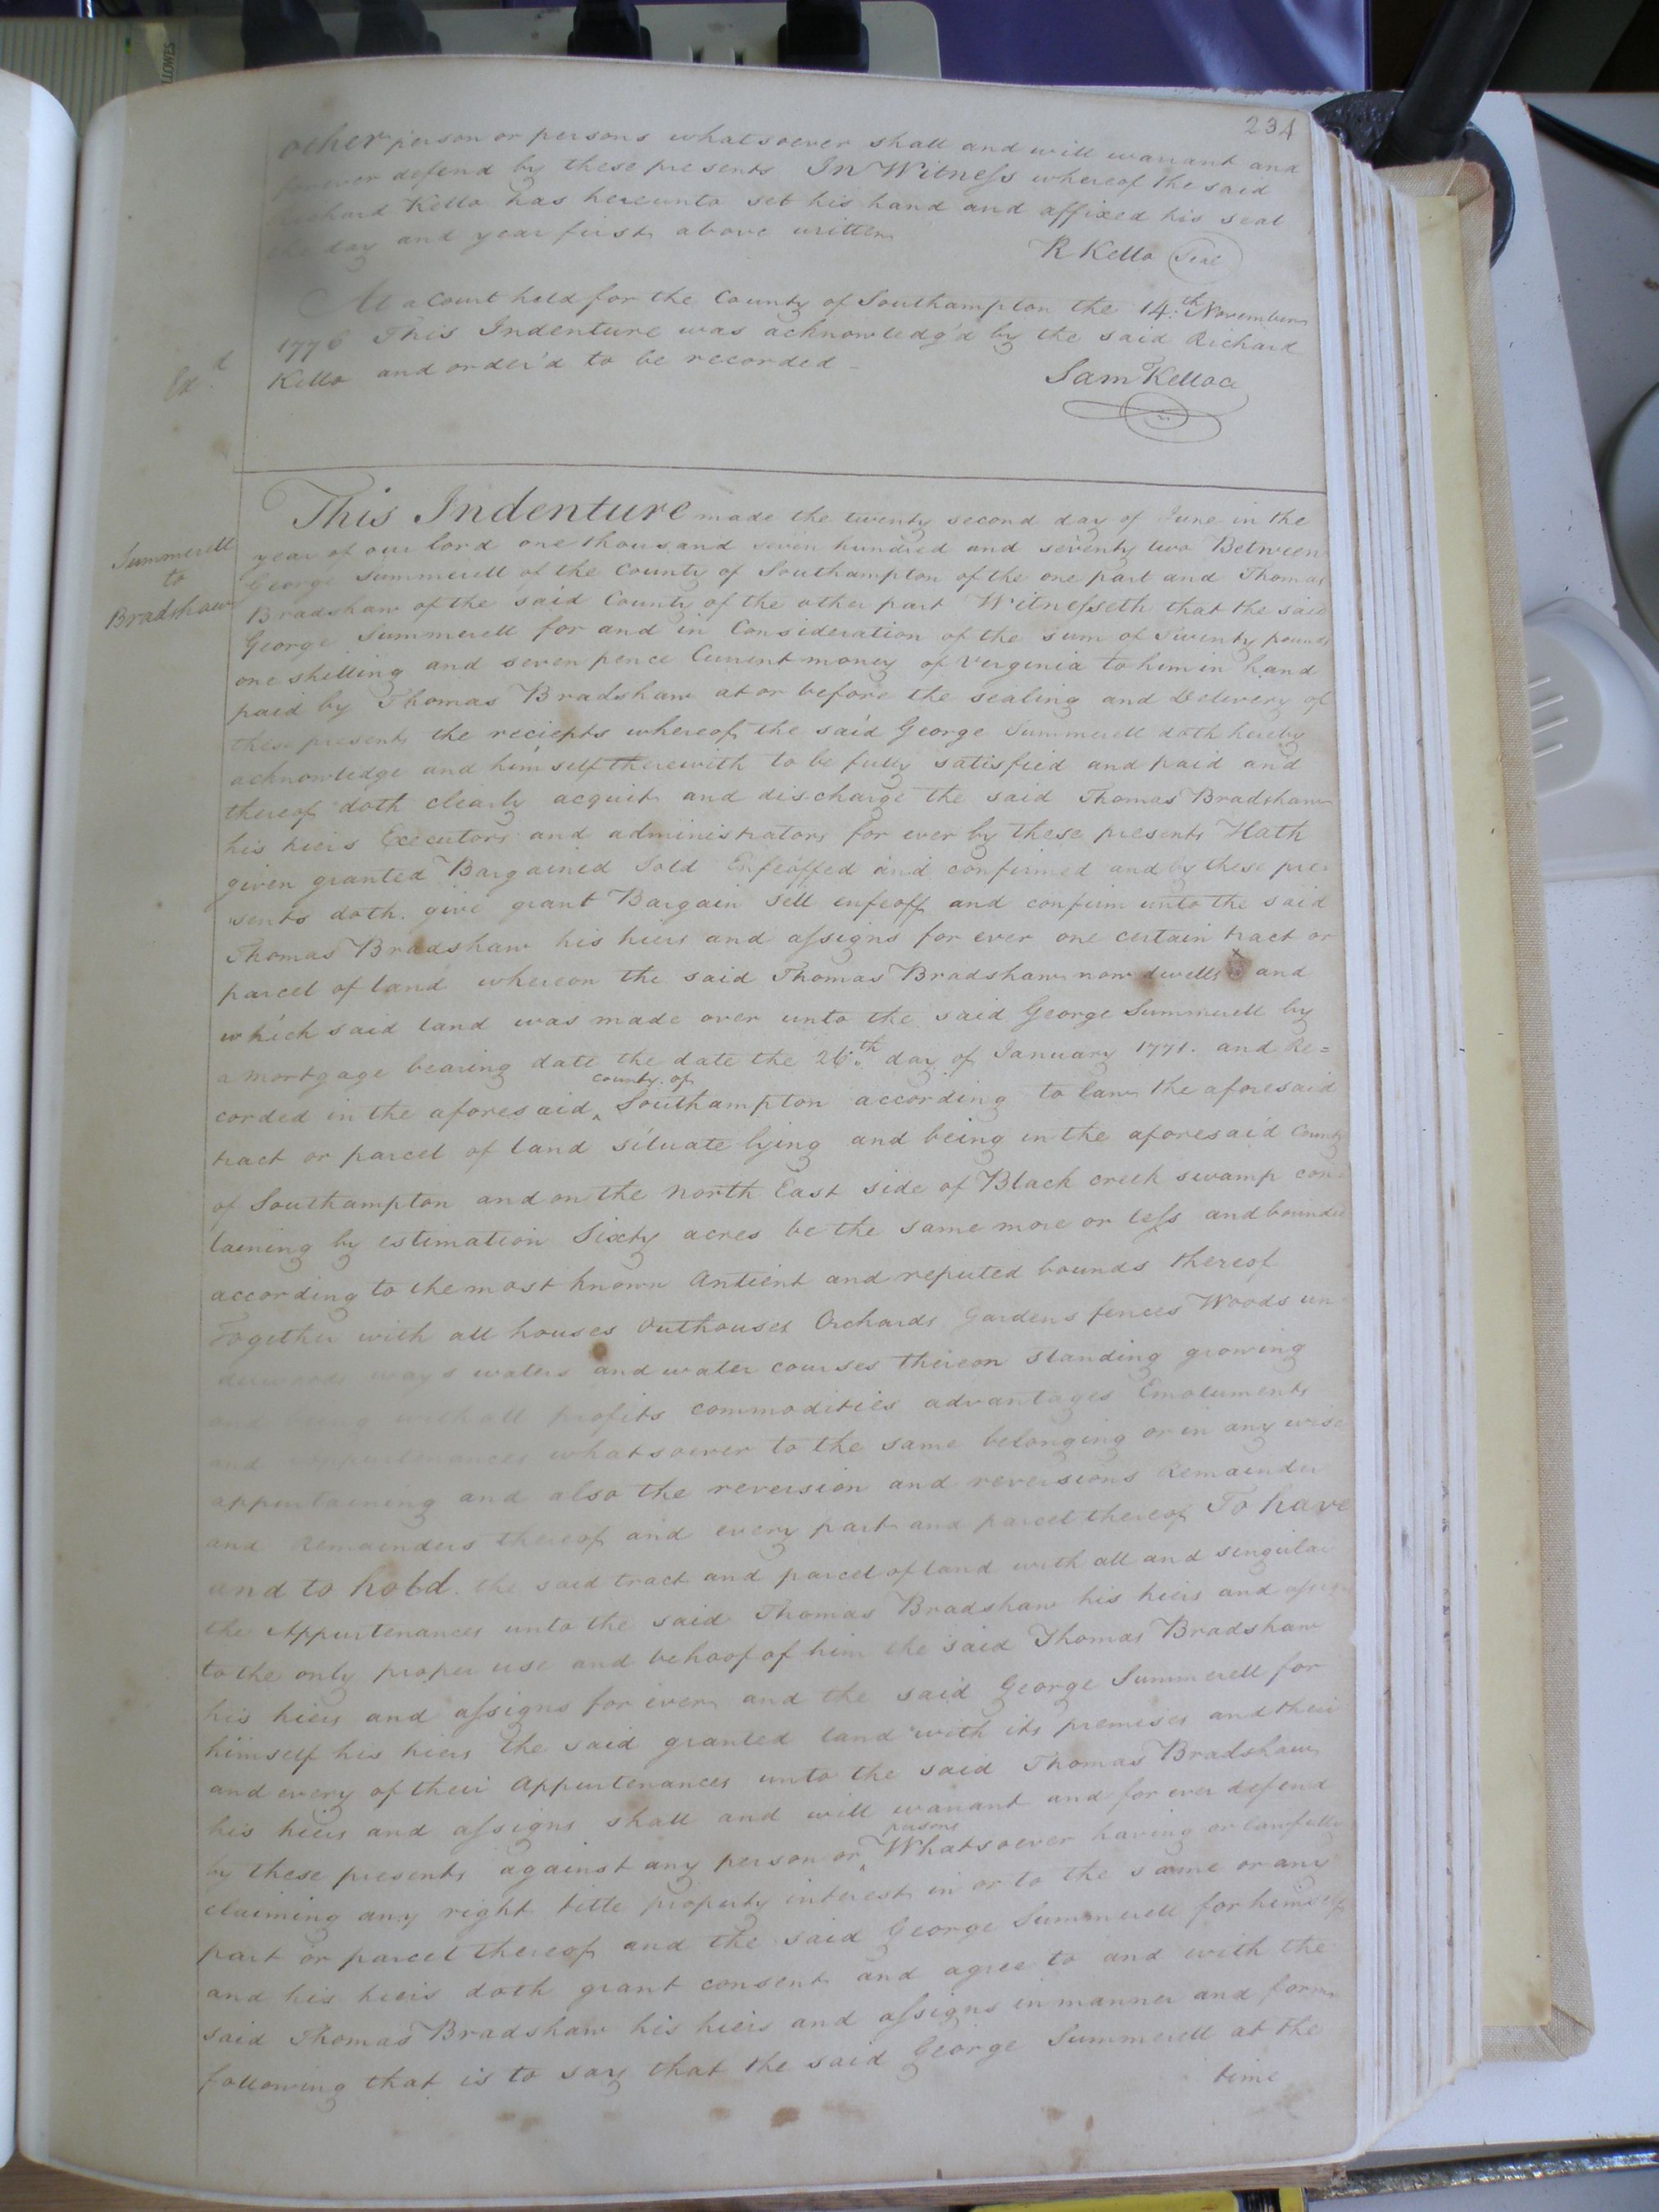 234
other person or persons whatsoever shall and will warrant and
forever defend by these presents In Witness whereof the said
Richard Kello has hereunto set his hand and affixed his seal
the day and year first above written
R Kello Seal
At a Court held for the County of Southampton the 14th November
1776 This Indenture was acknowledg'd by the said Richard
Kello and order'd to be recorded
Exd
Sam Kello
This Indenture made the twenty second day of June in the
Summerell
to
Bradshaw
year of our lord one thousand seven hundred and seventy two Between
George Summerell of the County of Southampton of the one part and Thomas
Bradshaw of the said County of the other part Witnesseth that the said
George Summerell for and in Consideration of the sum of Twenty pounds
one shilling and seven pence Current money of Verginia to him in hand
paid by Thomas Bradshaw at or before the sealing and Delivery of
these presents the reciepts whereof the said George Summerell doth hereby
acknowledge and himself therewith to be fully satisfied and paid and
thereof doth clearly acquit and discharge the said Thomas Bradshaw
his hiers Executors and administrators for ever by these presents Hath
given granted Bargained Sold Enfeoffed and confirmed and by these pre
sents doth give grant Bargain Sell enfeoff and confirm unto the said
Thomas Bradshaw his hiers and assigns for ever one certain tract or
parcel of land whereon the said Thomas Bradshaw now dwells and
which said land was made over unto the said George Summerell by
a mortgage bearing date the date the 26th day of January 1771. and Re=
corded in the aforesaid county of Southampton according to law the aforesaid
tract or parcel of land situate lying and being in the aforesaid County
of Southampton and on the North East side of Black creek swamp con
taining by estimation Sixty acres be the same more or less and bounded
according to the most known Antient and reputed bounds thereof
Together with all houses Outhouses Orchards Gardens fences Woods un
derwoods ways waters and water courses thereon standing growing
and being with all profits commodities advantages Emoluments
and appurtenances whatsoever to the same belonging or in any wise
appurtaining and also the reversion and reversions Remainder
and Remainders thereof and every part and parcel thereof To have
and to hold the said tract and parcel of land with all and singular
the Appurtenances unto the said Thomas Bradshaw his hiers and assigns
to the only proper use and behoof of him the said Thomas Bradshaw
his hiers and assigns for ever and the said George Summerell for
himself his hiers the said granted land with its premises and their
and every of their Appurtenances unto the said Thomas Bradshaw
his hiers and assigns shall and will warrant and for ever defend
by these presents against any person or persons Whatsoever having or lawfully
claiming any right title property interest in or to the same or any
part or parcel thereof and the said George Summerell for himself
and his hiers doth grant consent and agree to and with the
said Thomas Bradshaw his hiers and assigns in manner and form
following that is to say that the said George Summerell at the
time